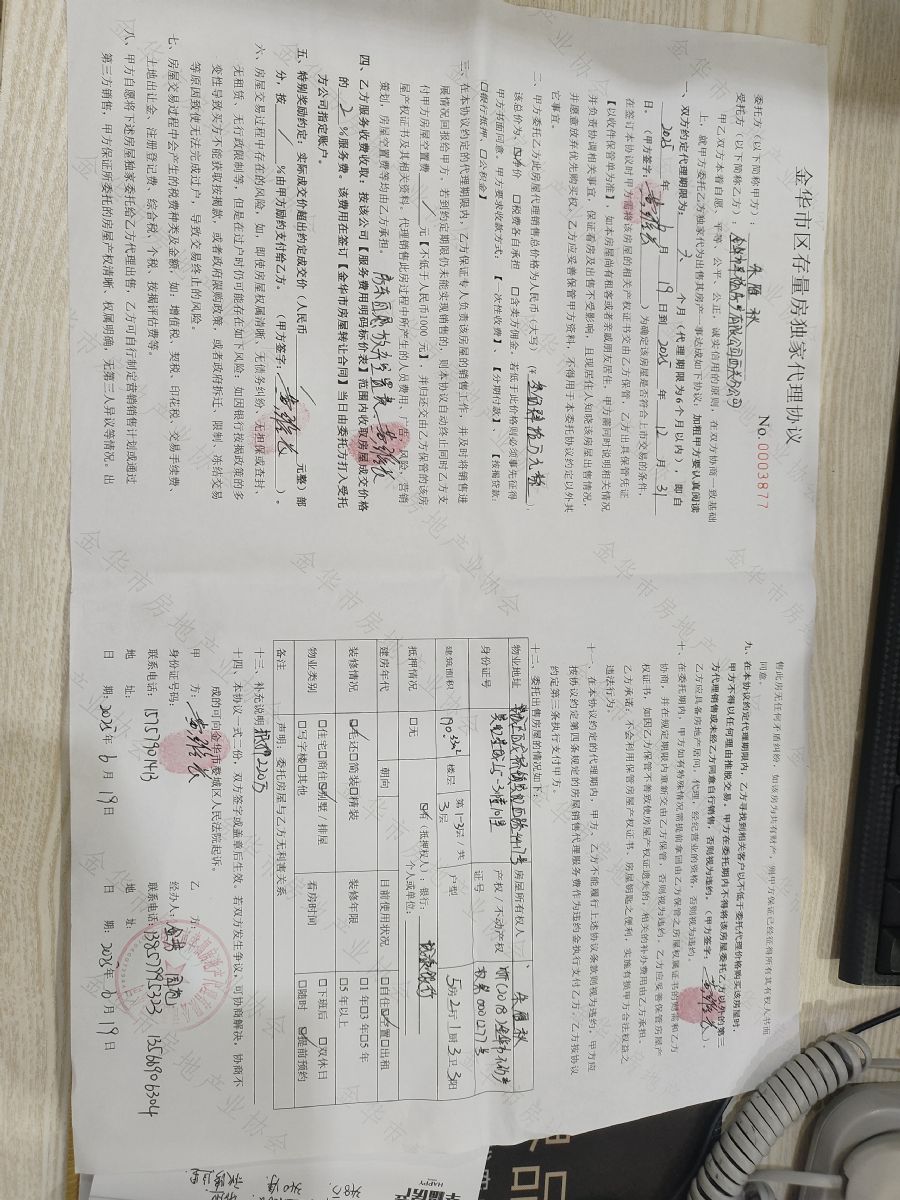 金华市区存量房独家代理协议
No.0003877
委托方(以下简称甲方):朱雁秋
受托方(以下简称乙方):
甲乙双方本着自愿、平等、公平、公正、诚实信用的原则,在双方协商一致基础
上,就甲方委托乙方独家代为出售其房产一事达成如下协议,加粗甲方要认真阅读
一、双方约定代理期限为: 个月(代理期限为6个月以内),即自
2025 年 6 月 19 日到 2025 年 12 月 31
日。(甲方签字: )为确定该房屋是否符合上市交易的条件,
在签订本协议时甲方需将该房屋的相关产权证书交由乙方保管,乙方出具保管凭证
【以收件保管单为准】,如本房屋尚有租客或者亲戚朋友居住,甲方需同时说明相关情况
并负责协调相关事宜,保证看房及出售不受影响,且现居住人知晓该房屋出售情况,
并愿意放弃优先购买权。乙方应妥善保管甲方资料,不得用于本委托协议约定以外其
它事宜。
二、甲方委托乙方此房屋代理销售总价格为人民币(大写)
该总价为:☑净价 □税费各自承担 □含卖方佣金,若低于此价格则必须事先征得
甲方书面同意。甲方要求收款方式:【一次性收费】、【分期付款】、【按揭贷款:
□银行抵押、□公积金】
三、在本协议约定的代理期限内,乙方保证专人负责该房屋的销售工作,并及时将销售进
展情况回报给甲方;若到约定期限仍未能实现销售的,则本协议自动终止同时乙方支
付甲方房屋空置费 / 元【不低于人民币1000元】,并归还交由乙方保管的该房
屋产权证书及其相关资料,代理销售此房过程中所产生的人员费用、广告、风险、营销
策划、房屋空置费等均由乙方承担。
四、乙方服务收费收取:按该公司【服务费用明码标价表】范围内收取房屋成交价格
的 2 %服务费。该费用在签订【金华市房屋转让合同】当日由委托方打入受托
方公司指定账户。
五、特别奖励约定:实际成交价超出约定成交价(人民币 / 元整)部
分,按 / %由甲方励约支付给乙方。(甲方签字: )。
六、房屋交易过程中存在的风险,如:即使房屋权属清晰、无债务纠纷、无担保或查封、
无租赁、无行政限制等,但是在过户时仍可能存在如下风险:如因银行按揭政策的多
变性导致买方不能获取按揭款,或者政府限购政策,或者政府拆迁、限制、冻结交易
等原因致使无法完成过户,导致交易终止的风险。
七、房屋交易过程中会产生的税费种类及金额,如:增值税、契税、印花税、交易手续费、
土地出让金、注册登记费、综合税、个税、按揭评估费等。
八、甲方自愿将下述房屋独家委托给乙方代理出售,乙方可自行制定营销销售计划或通过
第三方销售,甲方保证所委托的房屋产权清晰,权属明确,无第三人异议等情况。出
售此房无任何矛盾纠纷,如该房为共有财产,则甲方保证已经征得所有其有权人书面
同意。
九、在本协议约定代理期限内,乙方寻找到相关客户以不低于委托代理价格购买该房屋时,
甲方不得以任何理由推脱交易,甲方在委托期内不得将该房屋委托乙方以外的第三
方代理销售或未经乙方同意自行销售,否则视为违约。(甲方签字: )。
乙方应具备房地产中间、代理、经纪营业的资格,否则视为违约。
十、在委托期内,甲方如有特殊情况需提前拿回由乙方保管之房屋权属证书的需和乙方
协商,并在规定期限内重新交由乙方保管,否则视为违约。乙方应妥善保管房屋产
权证书,如因乙方保管不善致使房屋产权证遗失的,相关的补办费用由乙方承担。
乙方承诺:不会利用保管房屋产权证书、房屋钥匙之便利,实施有损甲方合法权益之
违法行为。
十一、在本协议约定的代理期内,甲方、乙方不能履行上述协议条款则视为违约。甲方应
按协议约定第四条规定的房屋销售代理服务费作为违约金执行支付乙方,乙方按协议
约定第三条执行支付甲方。
十二、委托出售房屋的情况如下:
物业地址 房屋所有权人 朱雁秋
身份证号 产权/不动产权证号
建筑面积 190.33m² 楼层 第1-3层/共3层 户型 5房2厅1厨3卫3阳
抵押情况 □无 ☑有(抵押权人):银行: 个人或单位:
建房年代 朝向 目前使用状况 □自住☑空置□出租
装修情况 ☑毛还□简装□精装 装修年限 □1年□3年□5年 □5年以上
物业类别 □住宅□商住☑别墅/排屋 □写字楼□其他 看房时间 □下班后 □双休日 □随时 ☑提前预约
备注 声明:委托房屋与乙方无利害关系
十三、补充说明:抵押220万
十四、本协议一式二份,双方签字或盖章后生效。若双方发生争议,可协商解决,协商不
成的可向金华市婺城区人民法院起诉。
甲 方: 乙 方:
身份证号码: 经办人:
联系电话: 联系电话:13857995323 13566906304
地 址: 地 址:
日 期:2025年6月19日 日 期:2025年6月19日